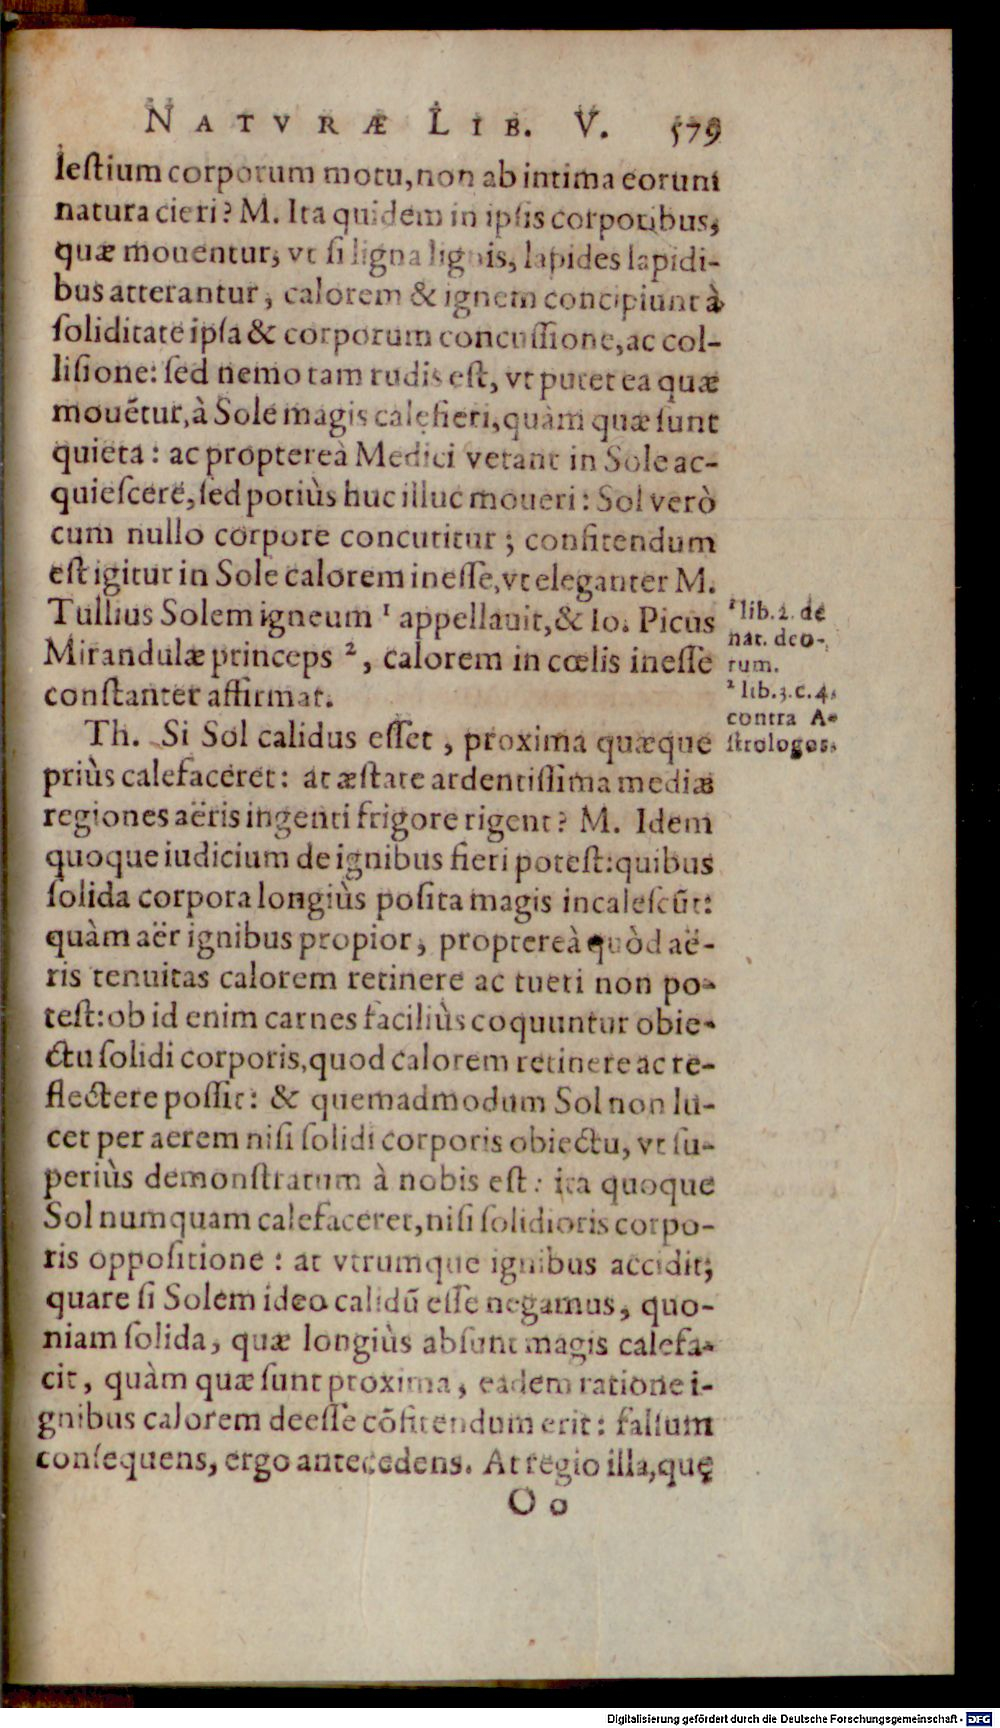 NATVRÆ LIB. V. 579
leſtium corporum motu, non ab intima eorum
natura cieri? M. Ita quidem in ipſis corporibus,
quæ mouentur, vt ſi ligna lignis, lapides lapidi-
bus atterantur, calorem & ignem concipiunt à
ſoliditate ipſa & corporum concuſſione, ac col-
liſione: ſed nemo tam rudis eſt, vt putet ea quæ
mouẽtur, à Sole magis calefieri, quàm quæ ſunt
quieta: ac proptereà Medici vetant in Sole ac-
quieſcere, ſed potiùs huc illuc moueri: Sol verò
cum nullo corpore concutitur; confitendum
eſt igitur in Sole calorem ineſſe, vt eleganter M.
Tullius Solem igneum ¹ appellauit, & Io. Picus
Mirandulæ princeps ², calorem in cœlis ineſſe
conſtanter affirmat.
¹ lib. 2. de
nat. deo-
rum.
² lib. 3. c. 4.
contra A-
ſtrologos.
Th. Si Sol calidus eſſet, proxima quæque
priùs calefaceret: at æſtate ardentiſſima mediæ
regiones aëris ingenti frigore rigent? M. Idem
quoque iudicium de ignibus fieri poteſt: quibus
ſolida corpora longiùs poſita magis incaleſcũt:
quàm aër ignibus propior, proptereà quòd aë-
ris tenuitas calorem retinere ac tueri non po-
teſt: ob id enim carnes faciliùs coquuntur obie-
ctu ſolidi corporis, quod calorem retinere ac re-
flectere poſſit: & quemadmodum Sol non lu-
cet per aerem niſi ſolidi corporis obiectu, vt ſu-
periùs demonſtratum à nobis eſt: ita quoque
Sol numquam calefaceret, niſi ſolidioris corpo-
ris oppoſitione: at vtrumque ignibus accidit;
quare ſi Solem ideo calidũ eſſe negamus, quo-
niam ſolida, quæ longiùs abſunt magis calefa-
cit, quàm quæ ſunt proxima, eadem ratione i-
gnibus calorem deeſſe cõfitendum erit: falſum
conſequens, ergo antecedens. At regio illa, quę
O o
Digitalisierung gefördert durch die Deutsche Forschungsgemeinschaft - DFG